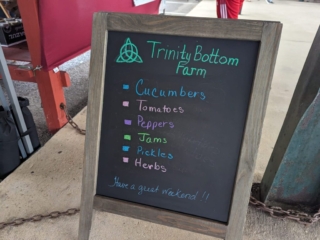 Trinity Bottom
Farm
Cucumbers
Tomatoes
Peppers
Jams
Pickles
Herbs
have a great weekend!!